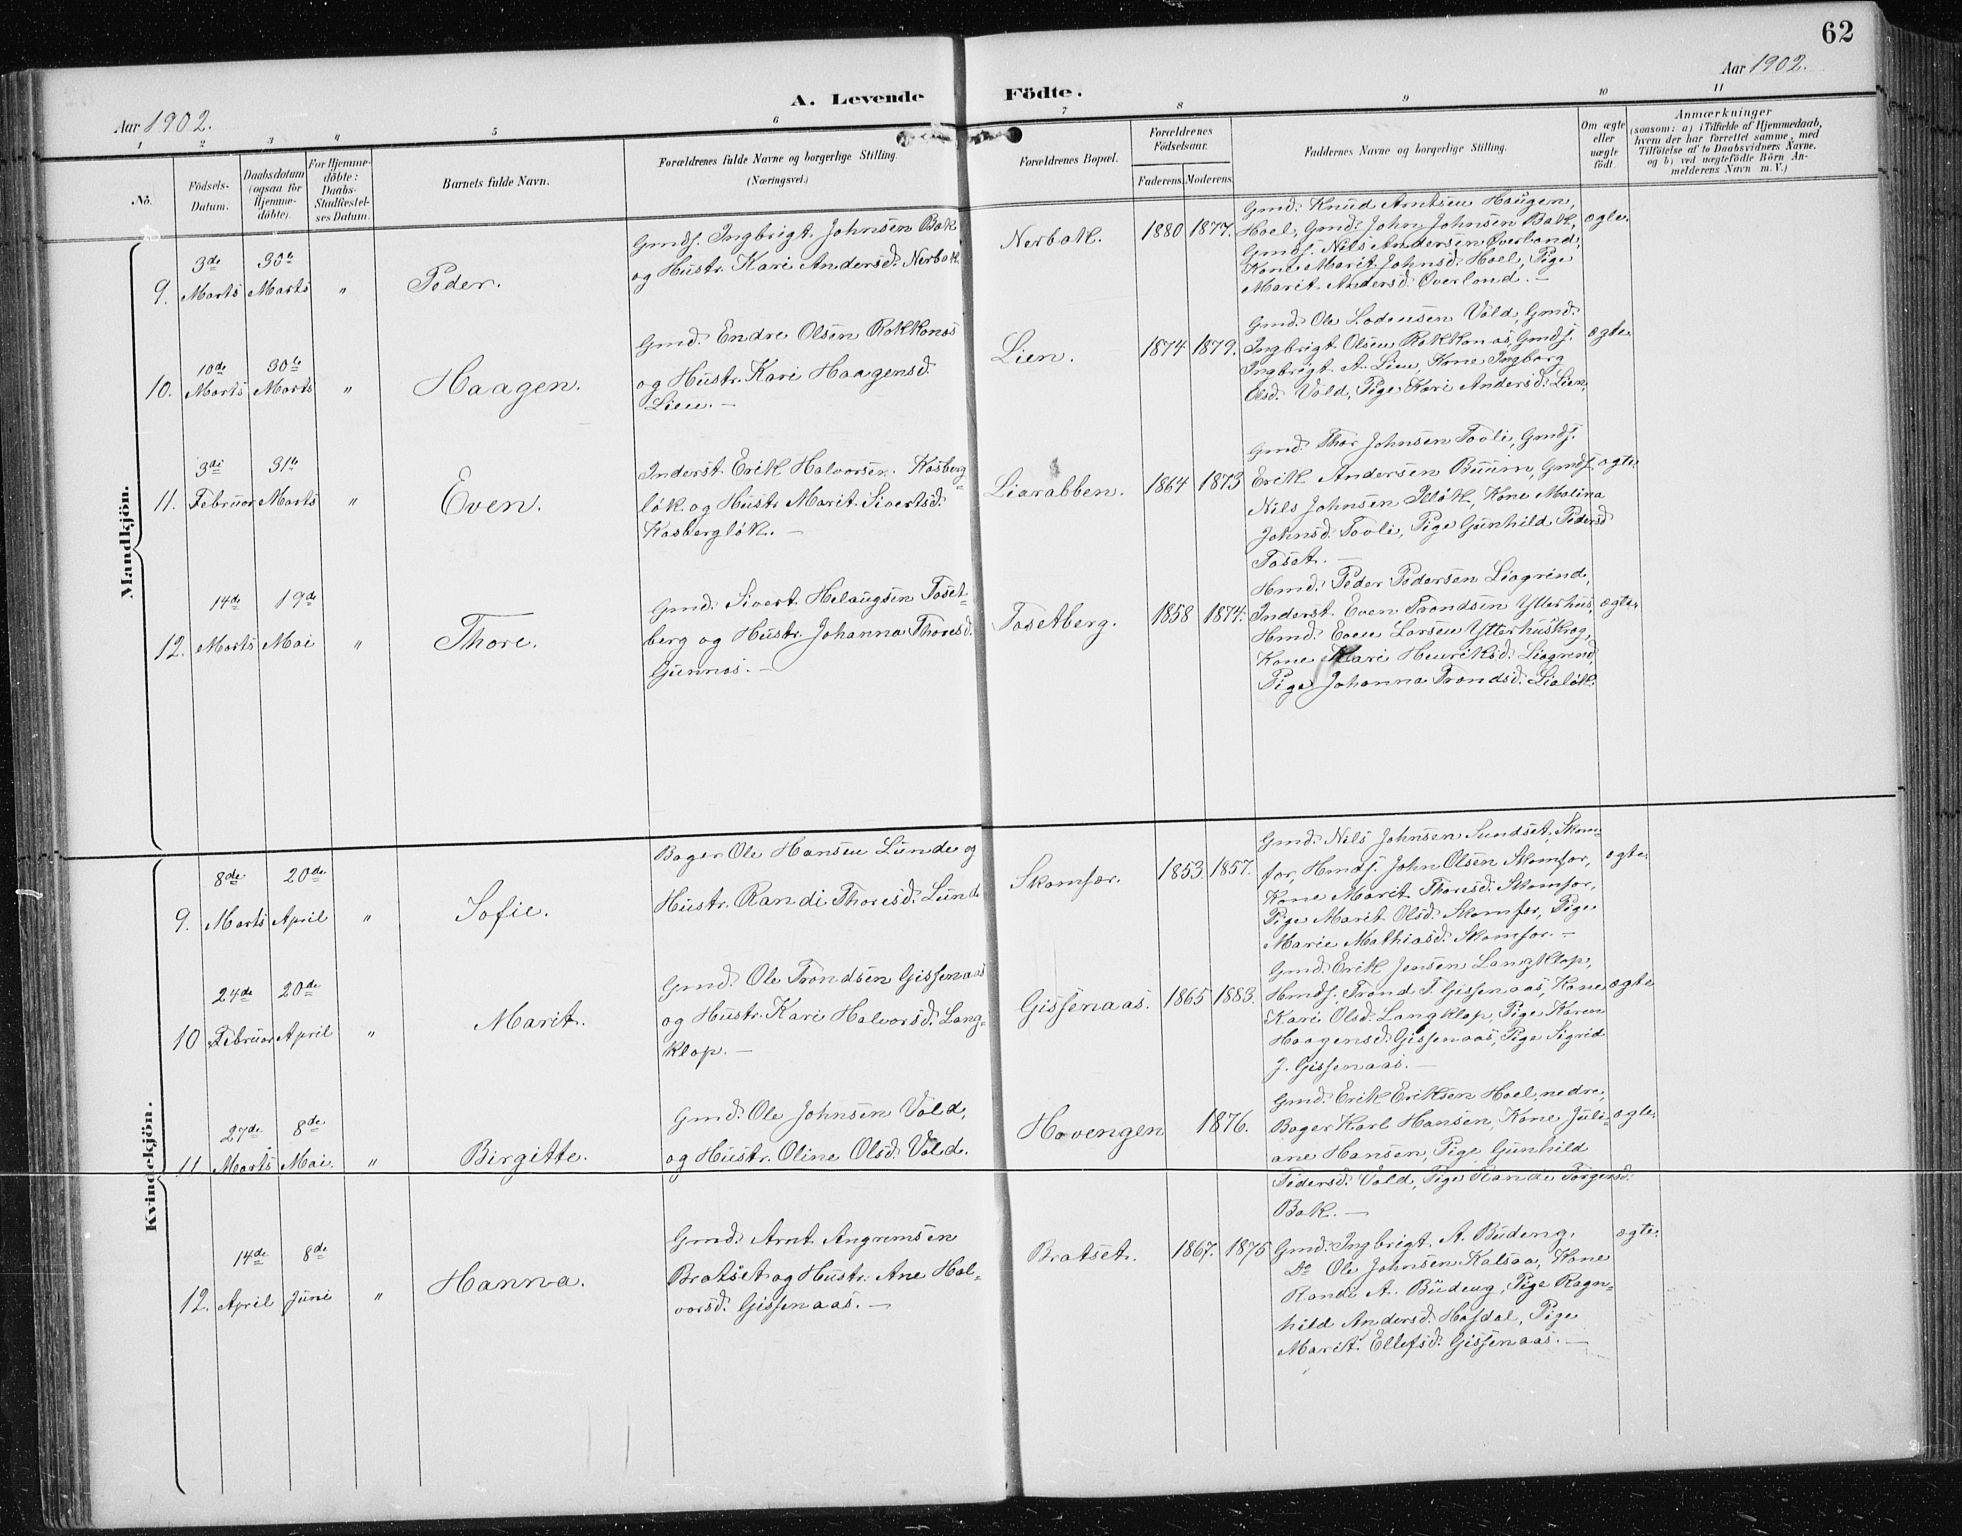 62
Aar 1902.
Aar 1902.
A. Levende Födte.
1 2 3 4 5 6 7 8 9 10 11
No.
Födsels-
Datum.
Daabsdatum
(ogsaa for
Hjemme-
döbte).
For Hjemme-
döbte:
Daabs-
Stadfæstel-
ses Datum.
Barnets fulde Navn.
Forældrenes fulde Navne og borgerlige Stilling.
(Næringsvei.)
Forældrenes Bopæl.
Forældrenes
Födselsaar.
Faderens. Moderens.
Faddernes Navne og borgerlige Stilling.
Om ægte
eller
uægte
født.
Anmærkninger
(saasom: a) i Tilfælde af Hjemmedaab,
hvem der har forrettet samme, med
Tilföielse af to Daabsvidners Navne.
og b) ved uægtefödte Börn An-
melderens Navn m. V.)
Mandkjön.
9.
3de
Marts
30te
Marts
"
Peder.
Gmdf. Ingbrigt Johnsen Bak
og Hustr. Kari Andersd. Nerbak
Nerbak.
1880 1877.
Gmd. Knud Arntsen Haugen,
Hoel, Gmd. John Johnsen Bak,
Gmdf. Nils Andersen Øverland,
Kone Marit Johnsd. Hoel, Pige
Marit Andersd. Øverland. —
ægte.
10.
10de
Marts
30te
Marts
"
Haagen.
Gmd. Endre Olsen Rokkonas
og Hustr. Kari Haagensd.
Lien. —
Lien.
1874 1879.
Gmd. Ole Lodensen Vold, Gmd.
Ingbrigt Olsen Rokkonas, Gmdf.
Ingbrigt A. Lien, Kone Ingborg
Olsd. Vold, Pige Kari Andersd. Lien,
ægte.
11.
3die
Februar
31te
Marts
"
Even.
Inderst. Erik Halvorsen Kasberg-
løk og Hustr. Marit Sivertsd.
Kasbergløk. —
Liarabben.
1864 1873
Gmd. Thor Johnsen Toole, Gmdf.
Erik Andersen Buum, Gmdf.
Nils Johnsen Illøk, Kone Malina
Johnsd. Toole, Pige Gunhild Pedersd
Toset. —
ægte.
12.
14de
Marts
19de
Mai
"
Thore.
Gmd. Sivert Helaugsen Toset-
berg og Hustr. Johanna Thoresd.
Gunnos. —
Tosetberg.
1858 1874.
Hmd. Peder Pedersen Liagrind,
Inderst. Even Trondsen Ytterhus,
Hmd. Even Larsen Ytterhuskrog,
Kone Mari Henriksd. Liagrind,
Pige Johanna Trondsd. Lialøk.
ægte.
Kvindekjön.
9.
8de
Marts
20de
April
"
Sofie.
Bager Ole Hansen Lunde og
Hustr. Randi Thoresd. Lund
Skamfær.
1853. 1857.
Gmd. Nils Johnsen Sundset, Skam-
fær, Hmdf. John Olsen Skamfær,
Kone Marit Thoresd. Skamfær,
Pige Marit Olsd. Skamfær, Pige
Marie Mathiasd. Skamfær. —
ægte.
10
24de
Februar
20de
April
"
Marit.
Gmd. Ole Trondsen Gissenaas
og Hustr. Kari Halvorsd. Lang-
klop. —
Gissenaas.
1865 1883.
Gmd. Erik Jensen Langklop,
Hmdf. Trond T. Gissenaas, Kone
Kari Olsd. Langklop, Pige Karen
Haagensd. Gissenaas, Pige Sigrid
J. Gissenaas. —
ægte
11
27de
Marts
8de
Mai.
"
Birgitte.
Gmd. Ole Johnsen Vold,
og Hustr. Oline Olsd. Vold.
Hovengen
1876.
Gmd. Erik Eriksen Hoel, nedre,
Bager Karl Hansen, Kone Juli-
ane Hansen, Pige Gunhild
Pedersd. Vold, Pige Randi Torgersd.
Bak. —
ægte.
12.
14de
April
8de
Juni
"
Hanna.
Gmd. Arnt Angrimsen
Bratset og Hustr. Ane Hal-
vorsd. Gissenaas. —
Bratset.
1867. 1875
Gmd. Ingbrigt A. Budeng,
Do Ole Johnsen Kalsaa, Kone
Randi A. Budeng, Pige Ragn-
hild Andersd. Hafdal, Pige
Marit Ellefsd. Gissenaas. —
ægte.